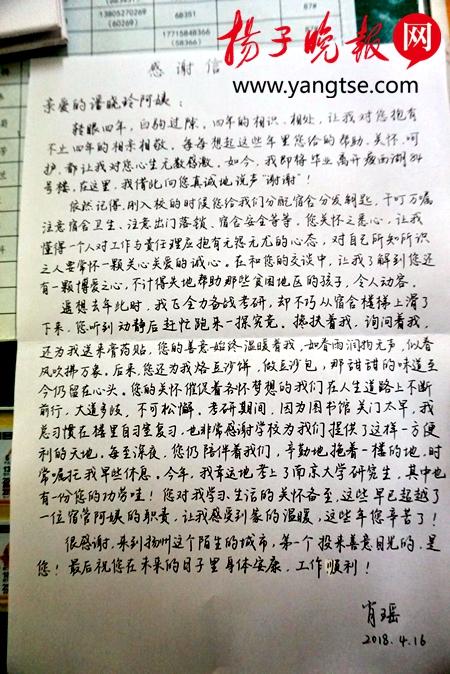 13805270269
(60269)
68351
87#
17715848366
扬子晚报网
www.yangtse.com
感谢信
亲爱的潘晓玲阿姨：
转眼四年，白驹过隙。四年的相识、相处，让我对您抱有
不止四年的相亲相敬。每每想起这些年里您给的帮助、关怀、呵
护，都让我对您心生无数感激。如今，我即将毕业离开瘦西湖24
号楼，在这里，我借此向您真诚地说声“谢谢”！
依然记得，刚入校的时候您给我们分配宿舍分发钥匙，千叮万嘱
注意宿舍卫生、注意出门落锁、宿舍安全等等，您关怀之悉心，让我
懂得一个人对工作与责任理应抱有无怨无尤的心态，对自己所知所识
之人要常怀一颗关心关爱的诚心。在和您的交谈中，让我了解到您还
有一颗博爱之心，不计得失地帮助那些贫困地区的孩子，令人动容。
遥想去年此时，我正全力备战考研，却不巧从宿舍楼梯上滑了
下来，您听到动静后赶忙跑来一探究竟。搀扶着我，询问着我，
还为我送来膏药贴，您的善意始终温暖着我，如春雨润物无声，似春
风吹拂万象。后来，您还为我烙豆沙饼，做豆沙包，那甜甜的味道至
今仍留在心头。您的关怀催促着各怀梦想的我们在人生道路上不断
前行，大道多歧，不可松懈。考研期间，因为图书馆关门太早，我
总习惯在楼里自习室复习，也非常感谢学校为我们提供了这样一方便
利的天地。每至深夜，您仍陪伴着我们，辛勤地拖着一楼的地，时
常嘱托我早些休息。今年，我幸运地考上了南京大学研究生，其中也
有一份您的功劳哇！您对我学习、生活的关怀备至，这些早已超越了
一位宿管阿姨的职责，让我感受到家的温暖，这些年您辛苦了！
很感谢，来到扬州这个陌生的城市，第一个投来善意目光的，是
您！最后祝您在未来的日子里身体安康，工作顺利！
肖瑶
2018.4.16